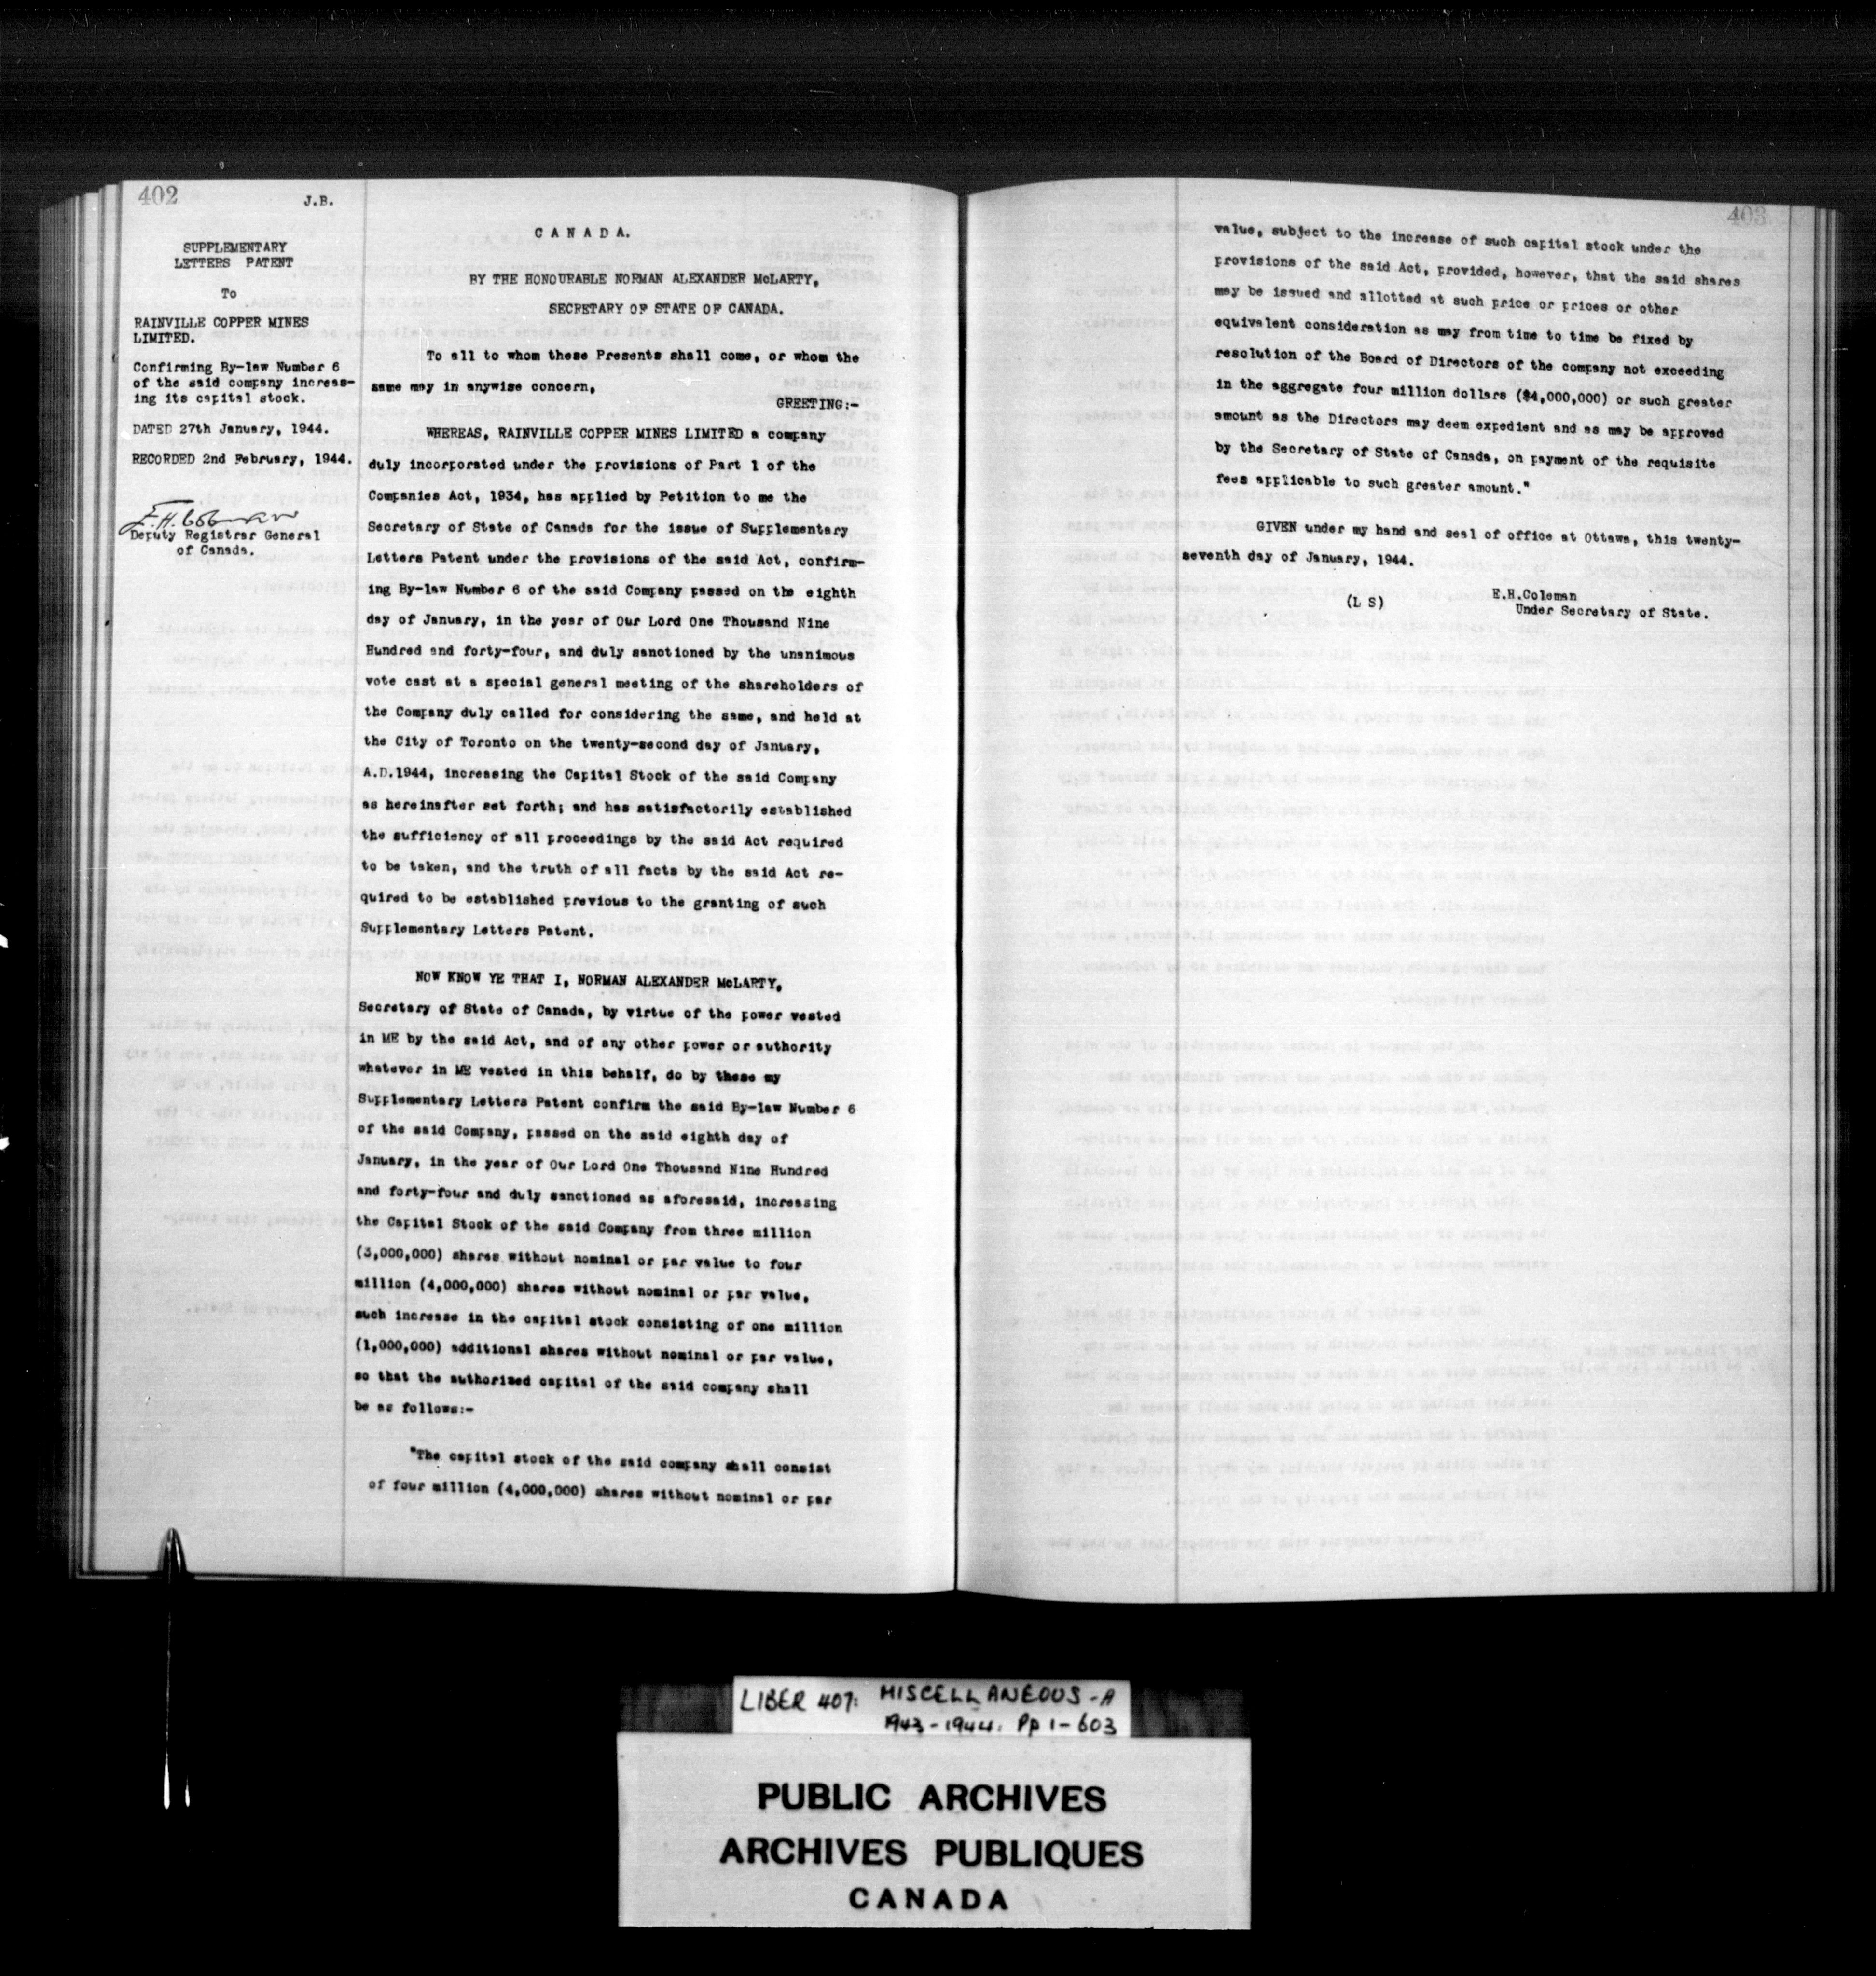 402
J.B.
SUPPLEMENTARY
LETTERS PATENT
To
RAINVILLE COPPER MINES
LIMITED.
Confirming By-law Number 6
of the said company increas-
ing its capital stock.
DATED 27th January, 1944.
RECORDED 2nd February, 1944.
E.H. Coleman
Deputy Registrar General
of Canada.
C A N A D A.
BY THE HONOURABLE NORMAN ALEXANDER McLARTY,
SECRETARY OF STATE OF CANADA.
To all to whom these Presents shall come, or whom the
same may in anywise concern,
GREETING:-
WHEREAS, RAINVILLE COPPER MINES LIMITED a company
duly incorporated under the provisions of Part 1 of the
Companies Act, 1934, has applied by Petition to me the
Secretary of State of Canada for the issue of Supplementary
Letters Patent under the provisions of the said Act, confirm-
ing By-law Number 6 of the said Company passed on the eighth
day of January, in the year of Our Lord One Thousand Nine
Hundred and forty-four, and duly sanctioned by the unanimous
vote cast at a special general meeting of the shareholders of
the Company duly called for considering the same, and held at
the City of Toronto on the twenty-second day of January,
A.D.1944, increasing the Capital Stock of the said Company
as hereinafter set forth; and has satisfactorily established
the sufficiency of all proceedings by the said Act required
to be taken, and the truth of all facts by the said Act re-
quired to be established previous to the granting of such
Supplementary Letters Patent.
NOW KNOW YE THAT I, NORMAN ALEXANDER McLARTY,
Secretary of State of Canada, by virtue of the power vested
in ME by the said Act, and of any other power or authority
whatever in ME vested in this behalf, do by these my
Supplementary Letters Patent confirm the said By-law Number 6
of the said Company, passed on the said eighth day of
January, in the year of Our Lord One Thousand Nine Hundred
and forty-four and duly sanctioned as aforesaid, increasing
the Capital Stock of the said Company from three million
(3,000,000) shares without nominal or par value to four
million (4,000,000) shares without nominal or par value,
such increase in the capital stock consisting of one million
(1,000,000) additional shares without nominal or par value,
so that the authorized capital of the said company shall
be as follows:-
"The capital stock of the said company shall consist
of four million (4,000,000) shares without nominal or par
403
value, subject to the increase of such capital stock under the
provisions of the said Act, provided, however, that the said shares
may be issued and allotted at such price or prices or other
equivalent consideration as may from time to time be fixed by
resolution of the Board of Directors of the company not exceeding
in the aggregate four million dollars ($4,000,000) or such greater
amount as the Directors may deem expedient and as may be approved
by the Secretary of State of Canada, on payment of the requisite
fees applicable to such greater amount."
GIVEN under my hand and seal of office at Ottawa, this twenty-
seventh day of January, 1944.
(L S)
E.H.Coleman
Under Secretary of State.
LIBER 407: MISCELLANEOUS - A
1943-1944. Pp 1-603
PUBLIC ARCHIVES
ARCHIVES PUBLIQUES
CANADA